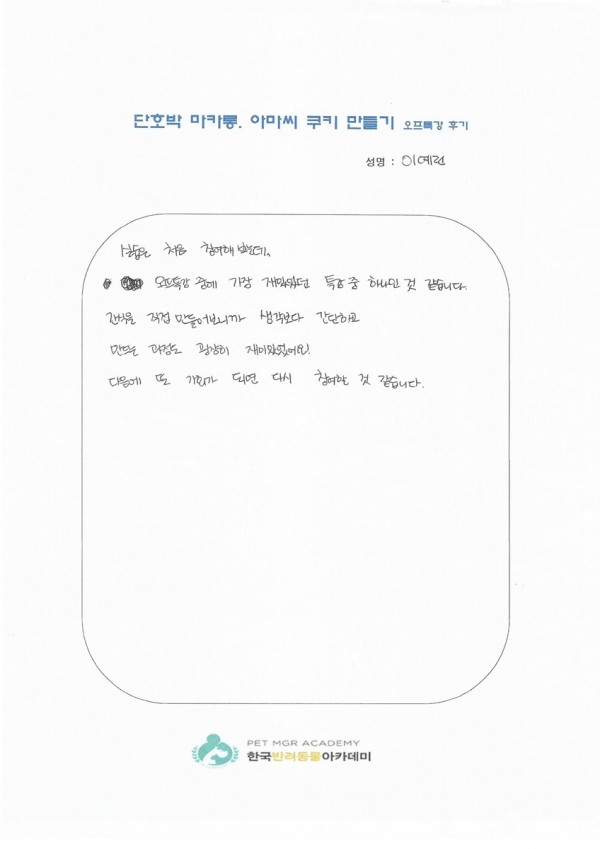 단호박 마카롱. 아마씨 쿠키 만들기 오프특강 후기
성명 : 이예린
실습은 처음 참여해 봤는데,
오프특강 중에 가장 재미있었던 특강 중 하나인 것 같습니다.
간식을 직접 만들어보니까 생각보다 간단하고
만드는 과정도 굉장히 재미있었어요!
다음에 또 기회가 되면 다시 참여할 것 같습니다.
PET MGR ACADEMY
한국반려동물아카데미